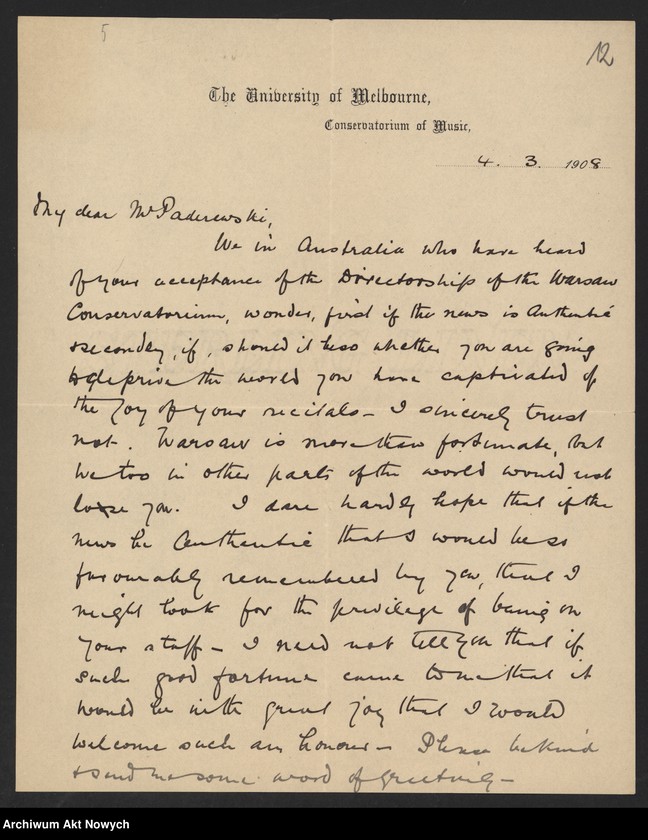 5
12
The University of Melbourne,
Conservatorium of Music,
4. 3. 1908
My dear Mr Paderewski,
We in Australia who have heard
of your acceptance of the Directorship of the Warsaw
Conservatorium, wonder, first if the news is Authentic
& secondly, if, should it be so whether you are going
to deprive the world you have captivated of
the Joy of your recitals – I sincerely trust
not. Warsaw is more than fortunate, but
we too in other parts of the world would not
lose you. I dare hardly hope that if the
news be Authentic that I would be so
favourably remembered by you, that I
might look for the privilege of being on
your staff – I need not tell you that if
such good fortune came to me that it
would be with great joy that I would
welcome such an honour – Please be kind
& send me some word of greeting –
Archiwum Akt Nowych